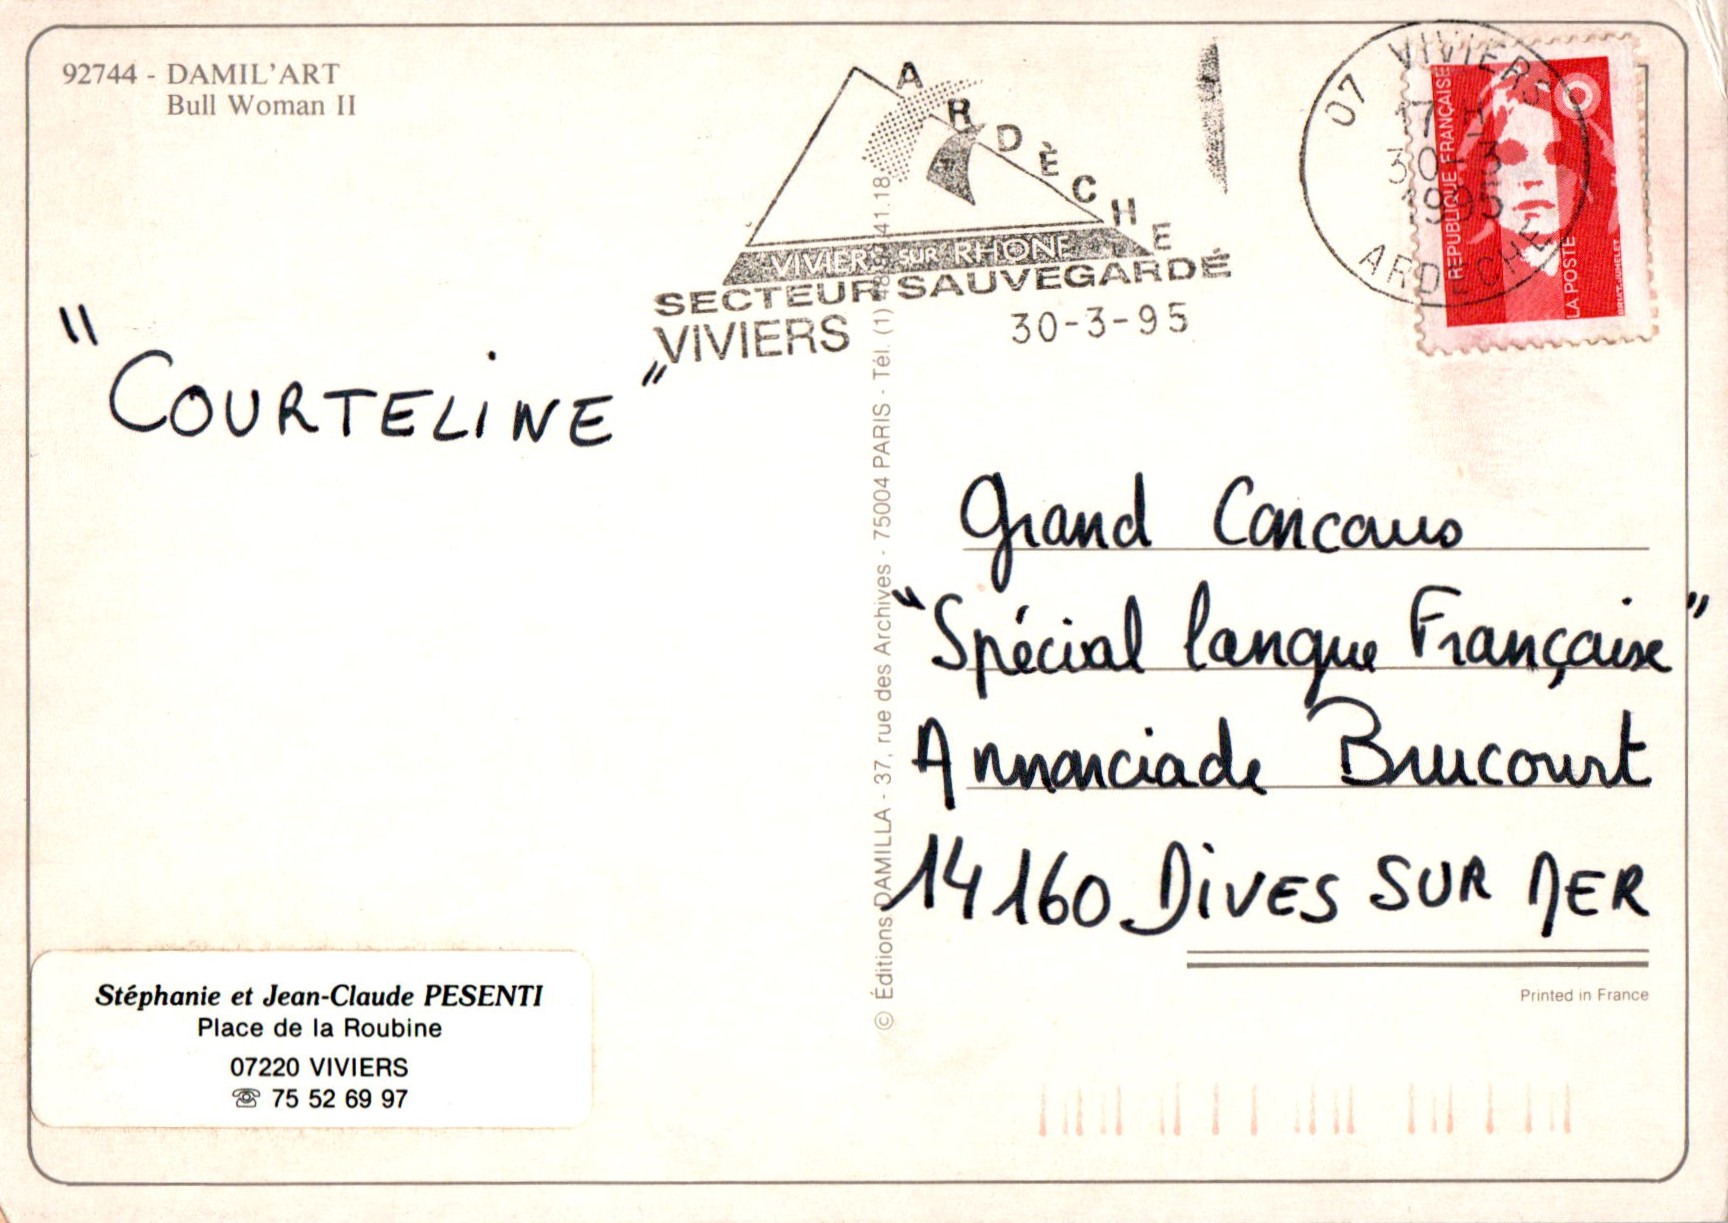 92744 - DAMIL'ART
Bull Woman II
ARDÈCHE
VIVIERS SUR RHONE
SECTEUR SAUVEGARDÉ
VIVIERS 30-3-95
07 VIVIERS
17 H
30-3
1995
ARDECHE
REPUBLIQUE FRANÇAISE
LA POSTE
"COURTELINE"
Grand Concours
"Spécial langue Française"
Annonciade Brucourt
14160 DIVES SUR MER
© Éditions DAMILLA - 37, rue des Archives - 75004 PARIS - Tél. (1) 41.18
Printed in France
Stéphanie et Jean-Claude PESENTI
Place de la Roubine
07220 VIVIERS
☏ 75 52 69 97